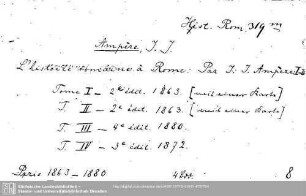 Hist. Rom. 319 m
Ampère, J. J.
L'histoire romaine à Rome: Par J. J. Ampère I-
Tome I - 2e édit. 1863. [mit einer Karte]
T. II - 2e édit. 1863. [mit einer Karte]
T. III - 4e édit. 1880.
T. IV - 3e édit. 1872.
Paris 1863-1880. 4 Bde. 8